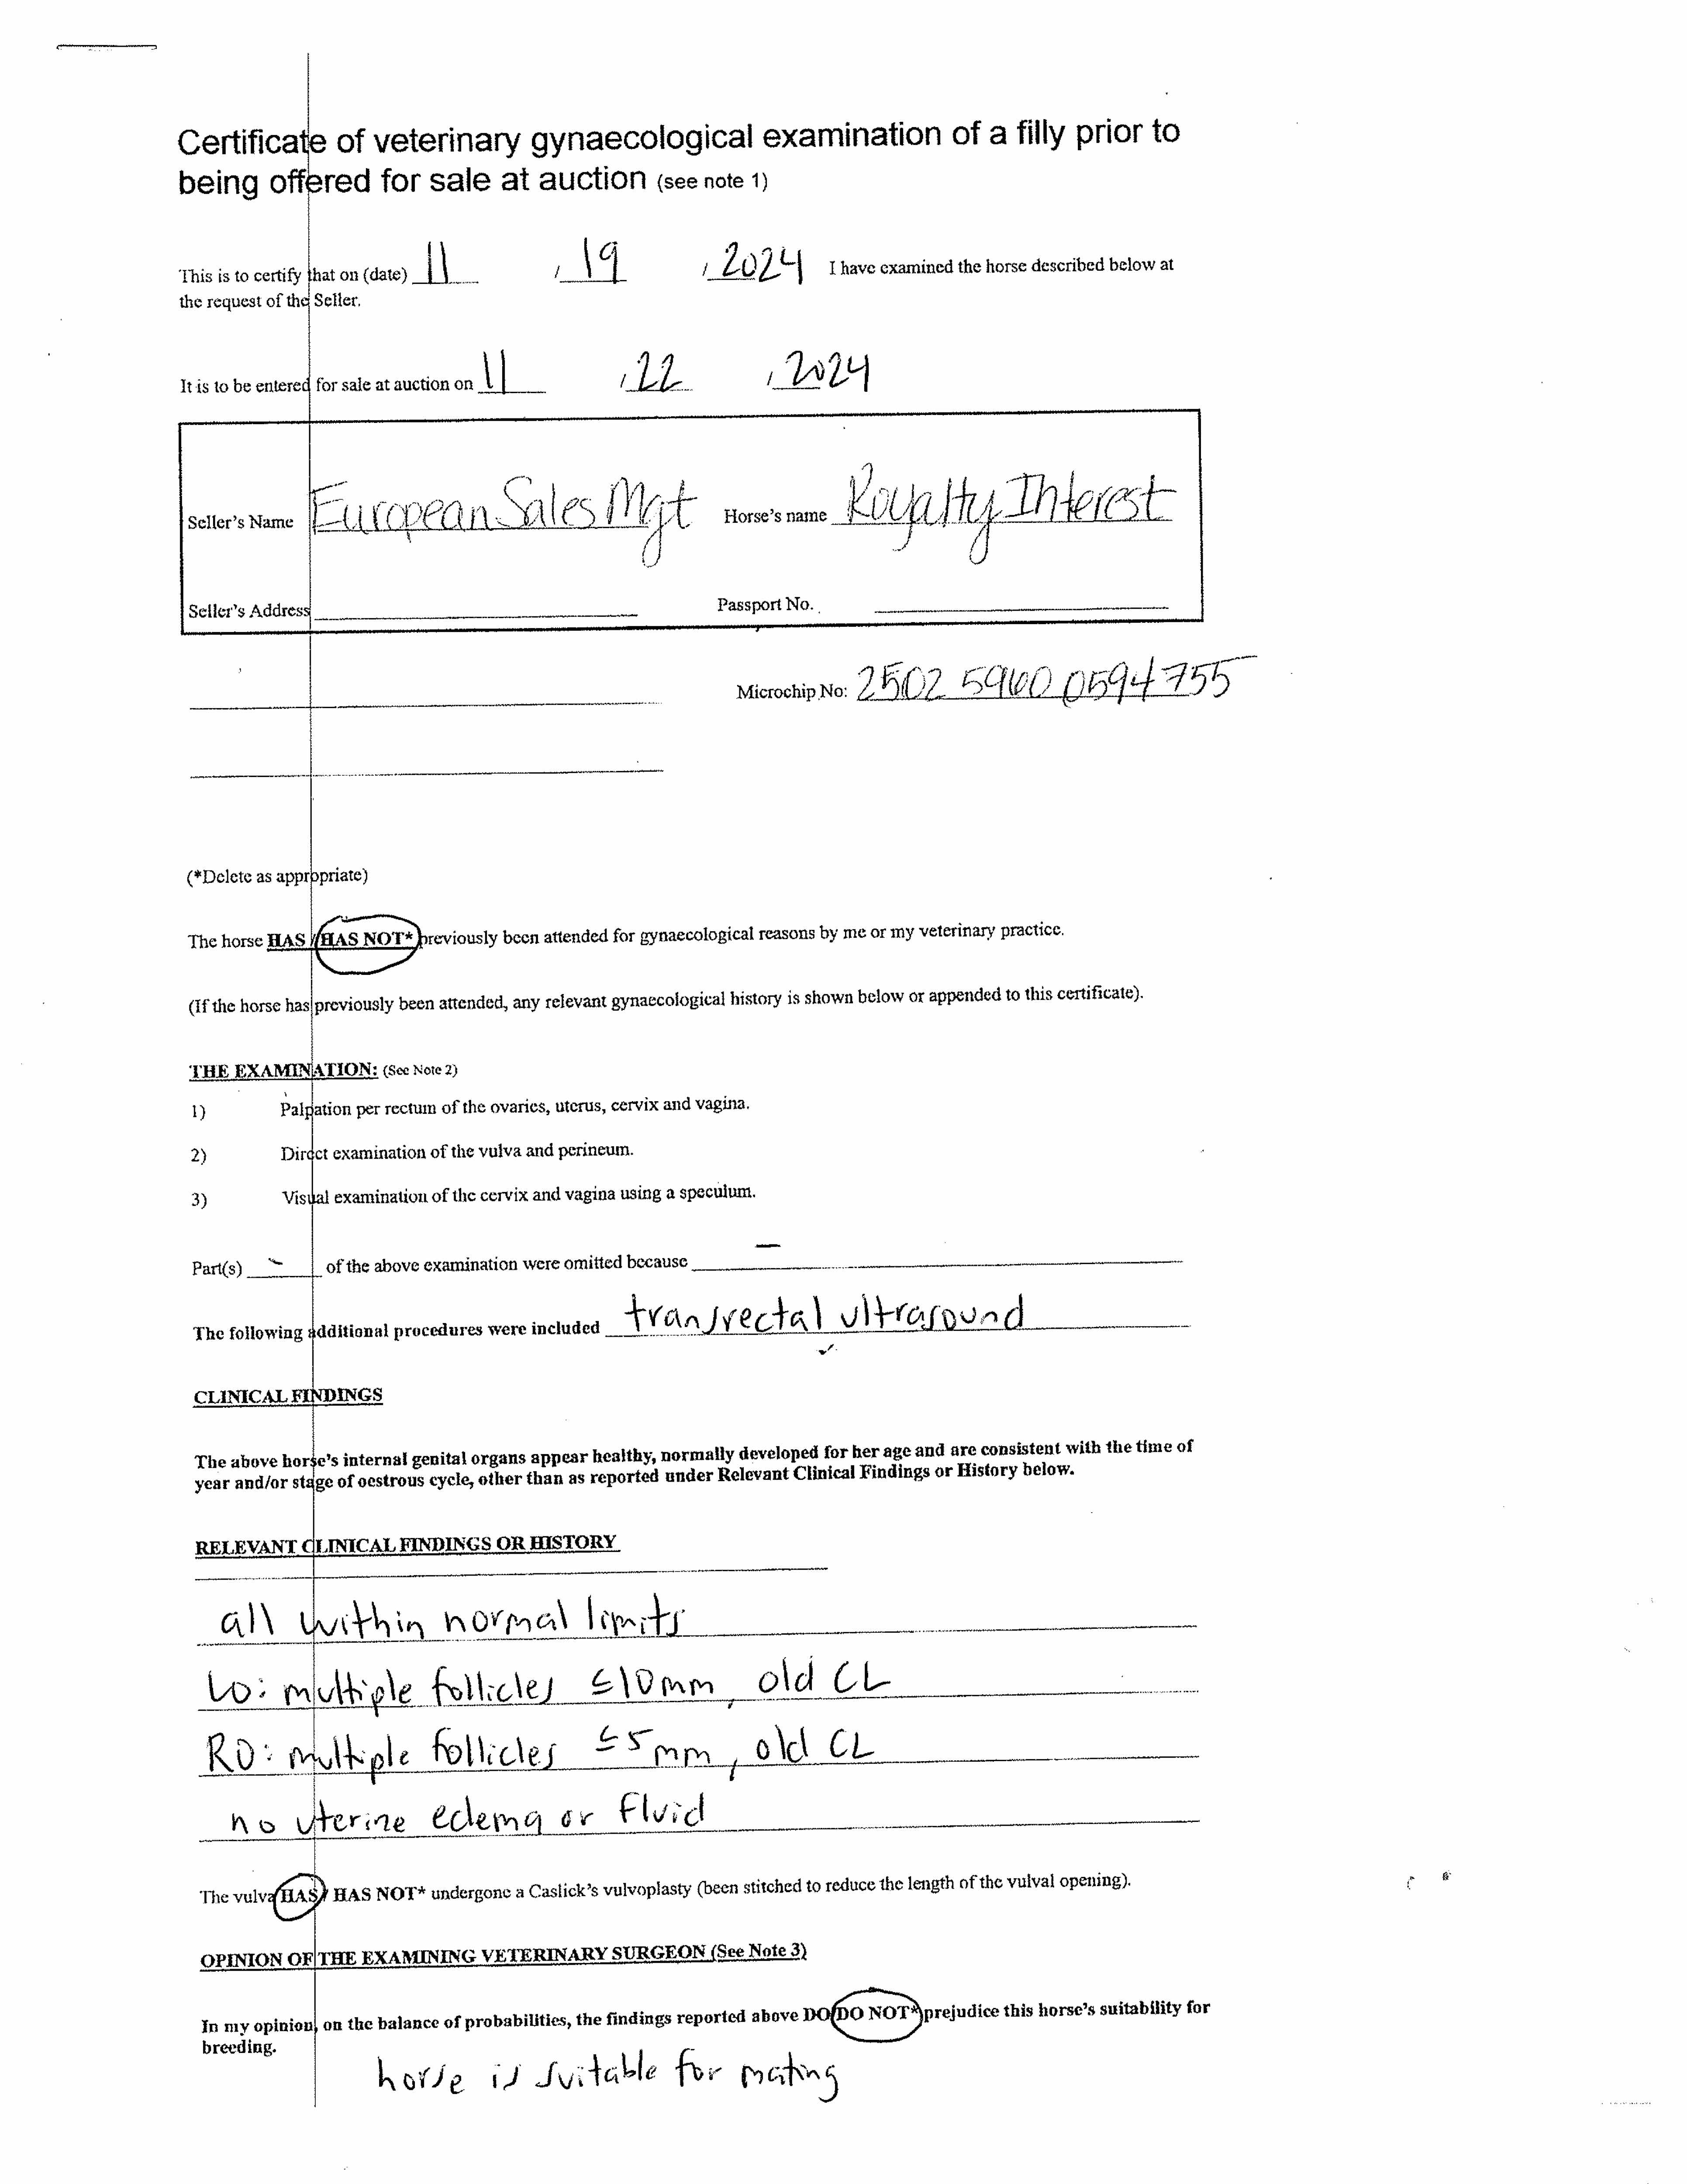 Certificate of veterinary gynaecological examination of a filly prior to
being offered for sale at auction (see note 1)
This is to certify that on (date) 11 , 19 , 2024 I have examined the horse described below at
the request of the Seller.
It is to be entered for sale at auction on 11 , 22 , 2024
Seller's Name European Sales Mgt Horse's name Royalty Interest
Seller's Address Passport No.
Microchip No: 2502 5960 0594755
(*Delete as appropriate)
The horse HAS / HAS NOT* previously been attended for gynaecological reasons by me or my veterinary practice.
(If the horse has previously been attended, any relevant gynaecological history is shown below or appended to this certificate).
THE EXAMINATION: (See Note 2)
1) Palpation per rectum of the ovaries, uterus, cervix and vagina.
2) Direct examination of the vulva and perineum.
3) Visual examination of the cervix and vagina using a speculum.
Part(s) - of the above examination were omitted because -
The following additional procedures were included transrectal ultrasound
CLINICAL FINDINGS
The above horse's internal genital organs appear healthy, normally developed for her age and are consistent with the time of
year and/or stage of oestrous cycle, other than as reported under Relevant Clinical Findings or History below.
RELEVANT CLINICAL FINDINGS OR HISTORY
all within normal limits
LO: multiple follicles ≤10mm, old CL
RO: multiple follicles ≤5mm, old CL
no uterine edema or fluid
The vulva HAS / HAS NOT* undergone a Caslick's vulvoplasty (been stitched to reduce the length of the vulval opening).
OPINION OF THE EXAMINING VETERINARY SURGEON (See Note 3)
In my opinion, on the balance of probabilities, the findings reported above DO/DO NOT* prejudice this horse's suitability for
breeding.
horse is suitable for mating